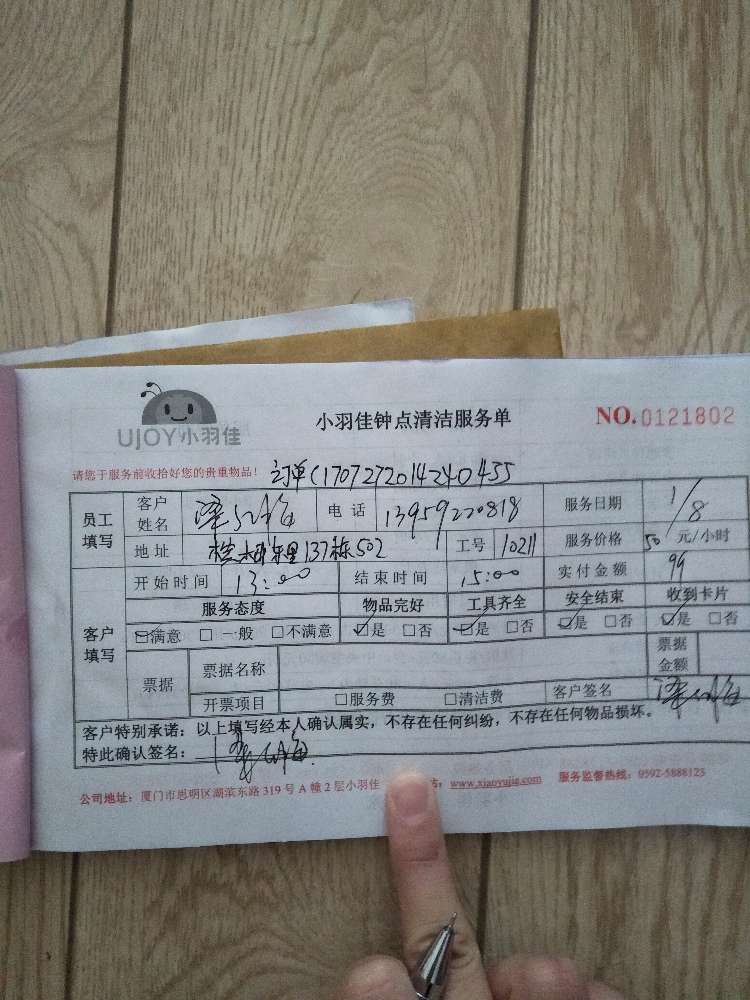 UJOY小羽佳
小羽佳钟点清洁服务单
NO.0121802
请您于服务前收拾好您的贵重物品！ 订单(1707272014240455
员工填写 客户姓名 电话 13959220818 服务日期 1/8
地址 里137栋502 工号 10211 服务价格 50 元/小时
客户填写 开始时间 13:00 结束时间 15:00 实付金额 99
服务态度 物品完好 工具齐全 安全结束 收到卡片
☑满意 □一般 □不满意 ☑是 □否 ☑是 □否 ☑是 □否 ☑是 □否
票据 票据名称 票据金额
开票项目 □服务费 □清洁费 客户签名
客户特别承诺：以上填写经本人确认属实，不存在任何纠纷，不存在任何物品损坏。
特此确认签名：
公司地址：厦门市思明区湖滨东路319号A幢2层小羽佳 www.xiaoyujia.com 服务监督热线：0592-5888123